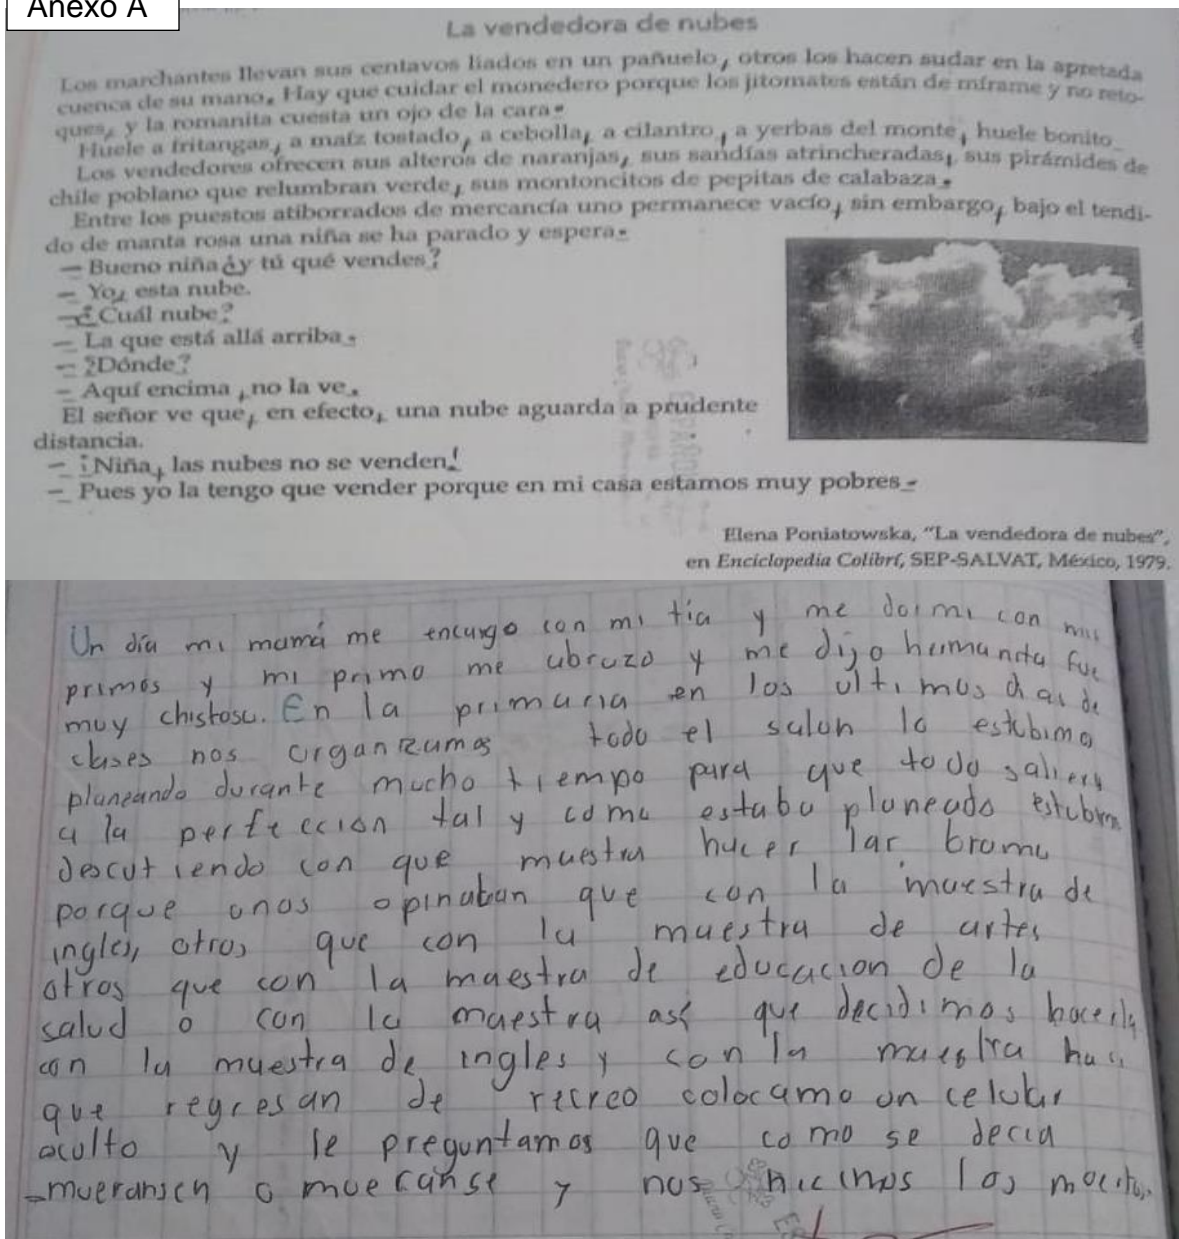 Anexo A
La vendedora de nubes
Los marchantes llevan sus centavos liados en un pañuelo, otros los hacen sudar en la apretada
cuenca de su mano. Hay que cuidar el monedero porque los jitomates están de mírame y no reto-
ques, y la romanita cuesta un ojo de la cara.
Huele a fritangas, a maíz tostado, a cebolla, a cilantro, a yerbas del monte, huele bonito
Los vendedores ofrecen sus alteros de naranjas, sus sandías atrincheradas, sus pirámides de
chile poblano que relumbran verde, sus montoncitos de pepitas de calabaza.
Entre los puestos atiborrados de mercancía uno permanece vacío, sin embargo, bajo el tendi-
do de manta rosa una niña se ha parado y espera.
— Bueno niña ¿y tú qué vendes?
— Yo, esta nube.
— ¿Cuál nube?
— La que está allá arriba.
— ¿Dónde?
— Aquí encima, no la ve.
El señor ve que, en efecto, una nube aguarda a prudente
distancia.
— ¡Niña, las nubes no se venden!
— Pues yo la tengo que vender porque en mi casa estamos muy pobres.
Elena Poniatowska, “La vendedora de nubes”,
en Enciclopedia Colibrí, SEP-SALVAT, México, 1979.
Un día mi mamá me encargo con mi tía y me dormi con mis
primos y mi primo me abrazo y me dijo hermanita fue
muy chistosa. En la primaria en los ultimos dias de
clases nos organizamos todo el salon lo estubimo
planeando durante mucho tiempo para que todo saliera
a la perfeccion tal y como estaba planeado estubim
descutiendo con que maestra hacer lar broma
porque unos opinaban que con la maestra de
ingles, otros que con la maestra de artes
otros que con la maestra de educacion de la
salud o con la maestra así que decidimos hacerla
con la maestra de ingles y con la maestra
que regresan de recreo colocamo un celular
oculto y le preguntamos que como se decia
mueransen o mueranse y nos hicimos los